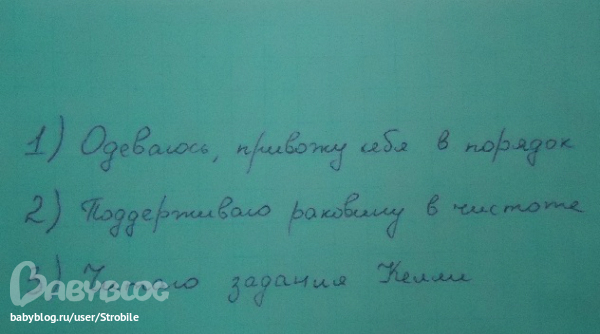 1) Одеваюсь, привожу себя в порядок
2) Поддерживаю раковину в чистоте
3) Читаю задания Келли
BABYBLOG
babyblog.ru/user/Strobile